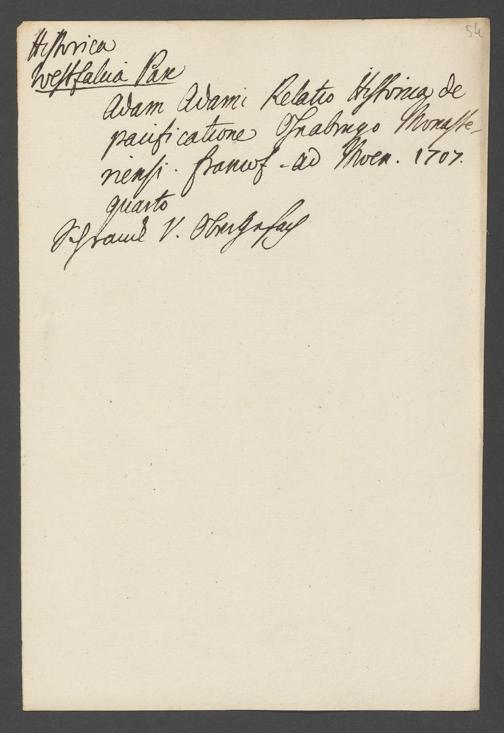 54
Historica
Westfalica Pax
Adam Adami Relatio Historica de
pacificatione Osnabrugo Monaste-
riensi. francof - ad Moen. 1707.
quarto
Schranck V. Ober